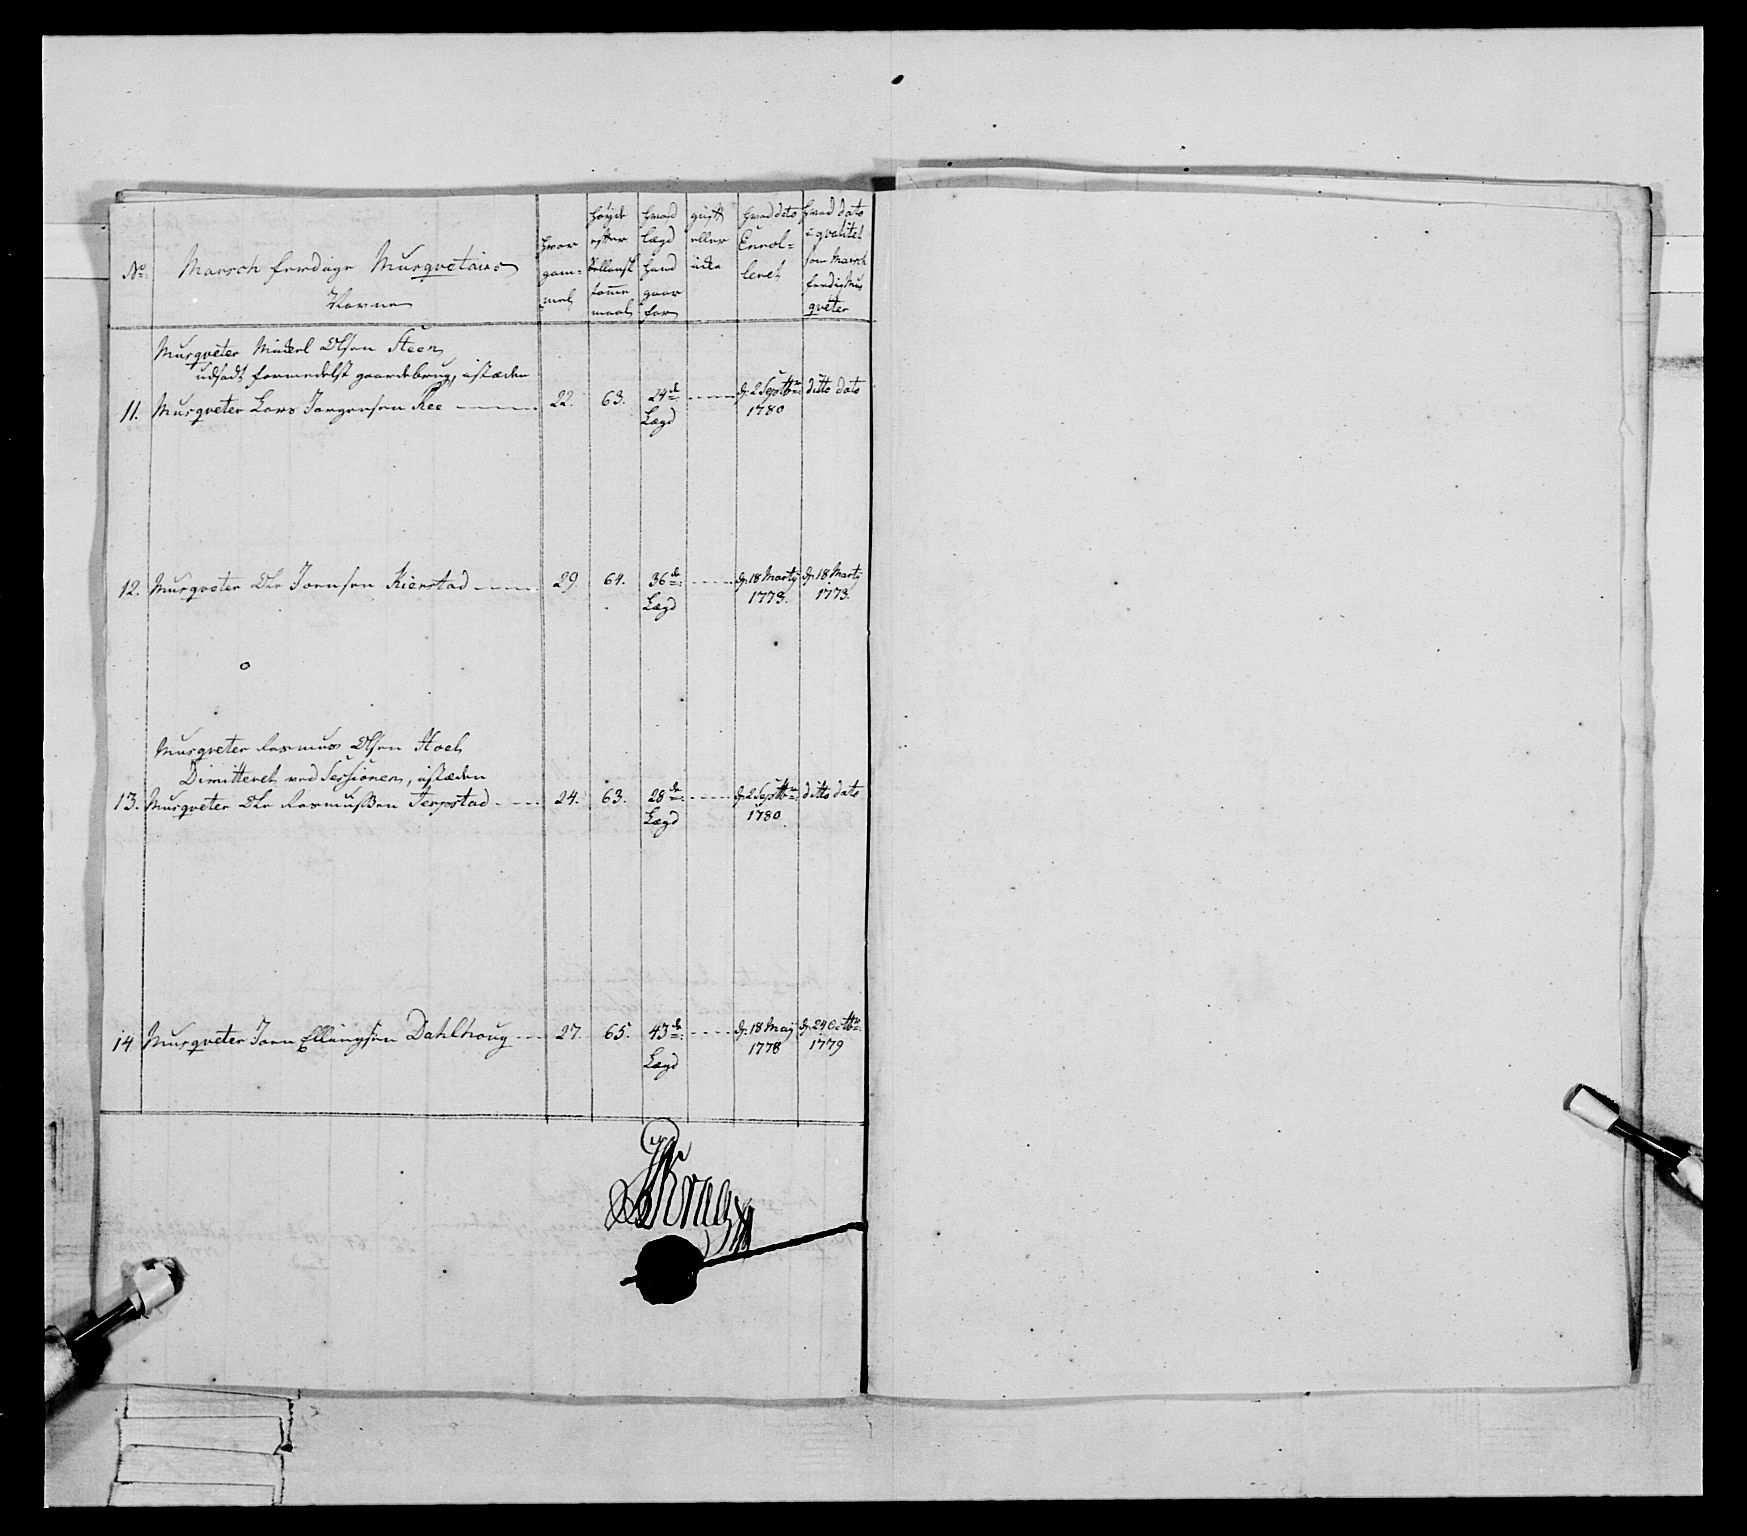 No.
Marsch færdige Musqvetairs
Navne
hvor
gam=
mel
høyde
efter
Sellansk
tomme
maal
hvad
lægd
hand
gaar
for
gift
eller
icke
hvad dato
Enrol=
leret
hvad dato
i qvalitet
som Marsch
færdig Mus
qveter
Musqveter Olsen Steen
udsadt formedelst gaardebrug, istæden
11. Musqveter Lars Jørgensen Ree 22. 63. 24de Lægd d. 2 Septbr: 1780 ditto dato
12. Musqveter Ole Joensen Kierstad 29. 64. 36de Lægd d. 18 Marty 1773. d. 18 Marty 1773.
Musqveter Rasmus Olsen Hoel
Dimitteret ved Sessionen, istæden
13. Musqveter Ole Rasmussen Jerpstad 24. 63. 28de Lægd d. 2 Septbr: 1780. ditto dato
14 Musqveter Joen Ellingsen Dahlhoug 27. 65. 43de Lægd d. 18 May 1778 d. 24 Octbr: 1779
Krag